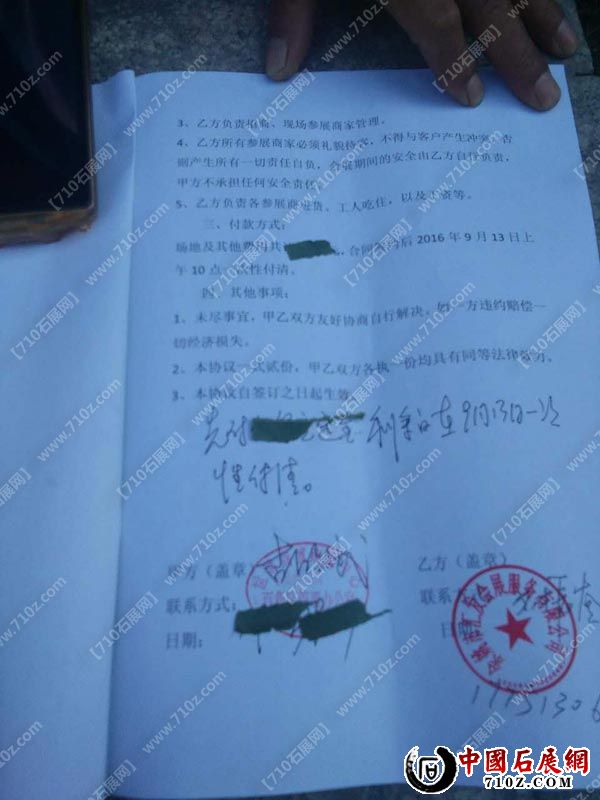 3、乙方负责招商、现场参展商家管理。
4、乙方所有参展商家必须礼貌待客，不得与客户产生冲突，否
则产生所有一切责任自负，会展期间的安全由乙方自行负责，
甲方不承担任何安全责任。
5、乙方负责各参展商进货、工人吃住，以及工资等。
三、付款方式：
场地及其他费用共 合同签约后 2016 年 9 月 13 日上
午 10 点一次性付清。
四、其他事项：
1、未尽事宜，甲乙双方友好协商自行解决。如一方违约赔偿一
切经济损失。
2、本协议一式贰份，甲乙双方各执一份均具有同等法律效力。
3、本协议自签订之日起生效。
先付 定金 剩余的在9月13日一次
性付清。
甲方（盖章） 乙方（盖章）
联系方式： 联系方式
日期： 日
会展服务有限公司
【710石展网】www.710z.com
中國石展網
710Z.COM